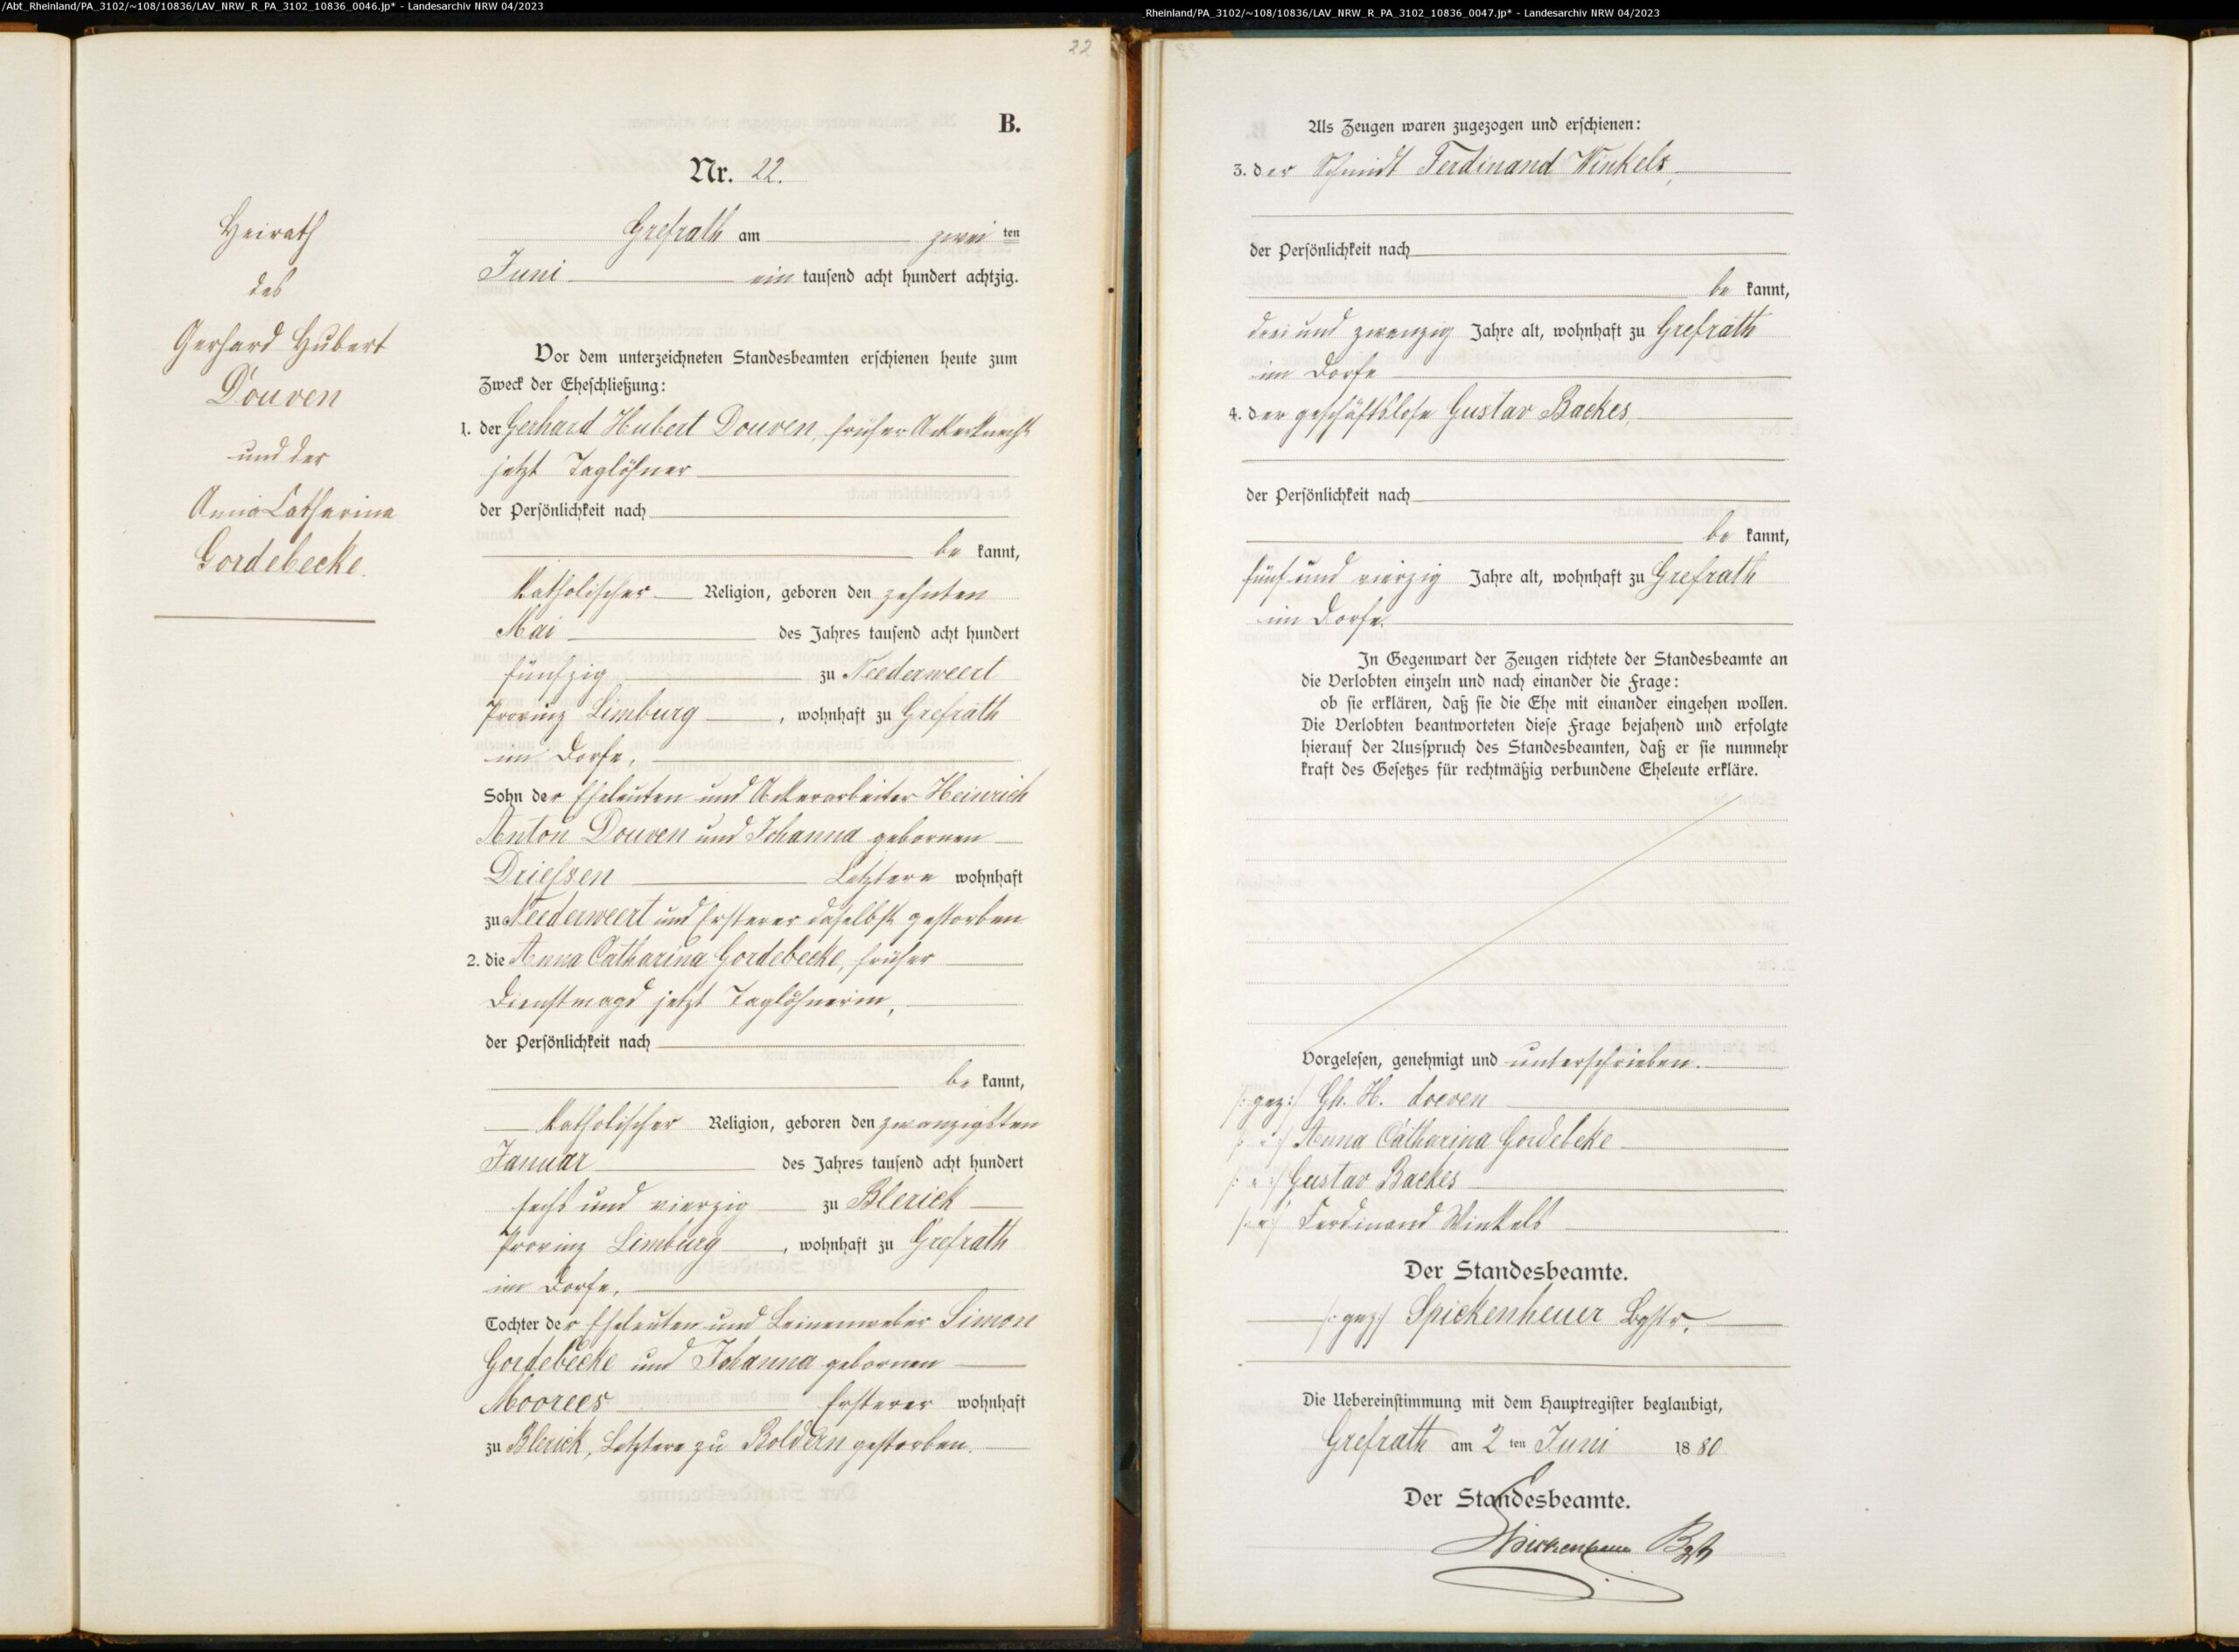 /Abt_Rheinland/PA_3102/~108/10836/LAV_NRW_R_PA_3102_10836_0046.jp* - Landesarchiv NRW 04/2023
22
B.
Nr. 22.
Heirath
des
Gerhard Hubert
Douven
und der
Anna Catharina
Gordebecke.
Grefrath am zwei ten
Juni ein tausend acht hundert achtzig.
Vor dem unterzeichneten Standesbeamten erschienen heute zum
Zweck der Eheschließung:
1. der Gerhard Hubert Douven, früher Ackerknecht
jetzt Taglöhner
der Persönlichkeit nach
be kannt,
Katholischer Religion, geboren den zehnten
Mai des Jahres tausend acht hundert
fünfzig zu Neederweert
Provinz Limburg , wohnhaft zu Grefrath
im Dorfe,
Sohn der Eheleuten und Ackerarbeiter Heinrich
Anton Douven und Johanna gebornen
Driessen Letztere wohnhaft
zu Neederweert und Ersterer daselbst gestorben
2. die Anna Catharina Gordebecke, früher
Dienstmagd jetzt Taglöhnerin,
der Persönlichkeit nach
be kannt,
Katholischer Religion, geboren den zwanzigsten
Januar des Jahres tausend acht hundert
sechs und vierzig zu Blerick
Provinz Limburg , wohnhaft zu Grefrath
im Dorfe,
Tochter der Eheleuten und Leinenweber Simon
Gordebecke und Johanna gebornen
Moorees Ersterer wohnhaft
zu Blerick, Letztere zu gestorben.
_Rheinland/PA_3102/~108/10836/LAV_NRW_R_PA_3102_10836_0047.jp* - Landesarchiv NRW 04/2023
Als Zeugen waren zugezogen und erschienen:
3. der Schmidt Ferdinand Winkels,
der Persönlichkeit nach
be kannt,
drei und zwanzig Jahre alt, wohnhaft zu Grefrath
im Dorfe
4. der geschäftslose Gustav Backes,
der Persönlichkeit nach
be kannt,
fünf und vierzig Jahre alt, wohnhaft zu Grefrath
im Dorfe.
In Gegenwart der Zeugen richtete der Standesbeamte an
die Verlobten einzeln und nach einander die Frage:
ob sie erklären, daß sie die Ehe mit einander eingehen wollen.
Die Verlobten beantworteten diese Frage bejahend und erfolgte
hierauf der Ausspruch des Standesbeamten, daß er sie nunmehr
kraft des Gesetzes für rechtmäßig verbundene Eheleute erkläre.
Vorgelesen, genehmigt und unterschrieben.
/: gez:/ Gh. H. doeven
/: " :/ Anna Catharina Gordebeke
/: " :/ Gustav Backes
/: " :/ Ferdinand Winkels
Der Standesbeamte.
/: gez:/ Spickenheuer Bgstr.
Die Uebereinstimmung mit dem Hauptregister beglaubigt,
Grefrath am 2 ten Juni 1880
Der Standesbeamte.
Spickenheuer Bgst